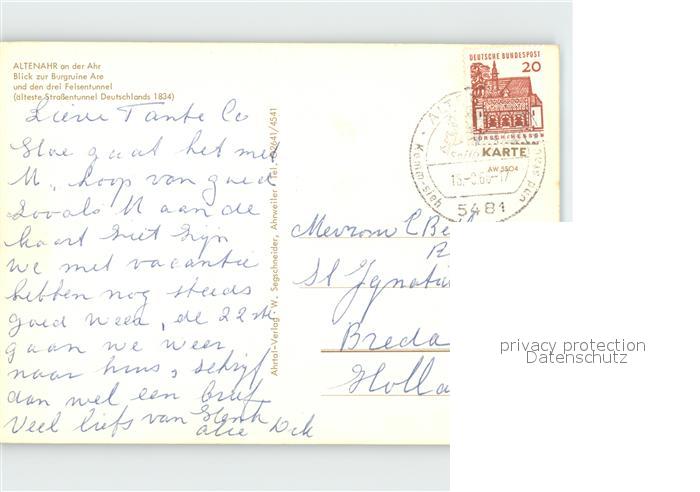 ALTENAHR an der Ahr
Blick zur Burgruine Are
und den drei Felsentunnel
(älteste Straßentunnel Deutschlands 1834)
Lieve Tante Co
Hoe gaat het met
U, hoop van goed
Zooals U aan de
kaart ziet zijn
we met vacantie
hebben nog steeds
goed weer, de 22ste
gaan we weer
naar huis, schrijf
dan wel een brief
Veel liefs van Henk
Dick
Ahrtal-Verlag · W. Segschneider, Ahrweiler Tel. 02641/4541
DEUTSCHE BUNDESPOST
20
LORSCH/HESSEN
KARTE
AW 5504
5481
Mevrouw C
St Ignatius
Breda
Holla
privacy protection
Datenschutz